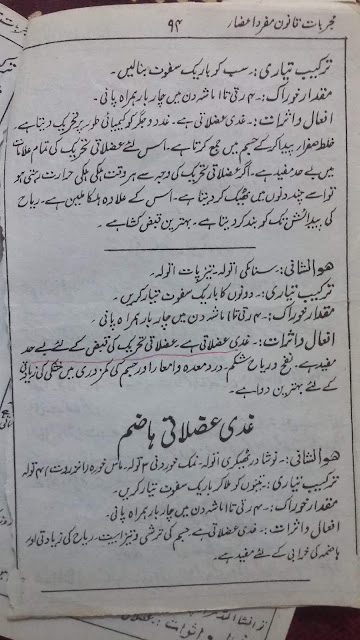 مجربات قانون مفرد اعضاء
۹۴
ترکیب تیاری:۔ سب کو باریک سفوف بنالیں۔
مقدار خوراک:۔ ۴ رتی تا ۱ ماشہ دن میں چار بار ہمراہ پانی۔
افعال و اثرات:۔ غدی عضلاتی ہے۔ غدد و جگر کو کیمیائی طور پر تحریک دیتا ہے۔
خلط صفراء پیدا کر کے جسم میں جمع کرتا ہے۔ اس لئے عضلاتی تحریک کی تمام علامات
میں بے حد مفید ہے۔ اگر عضلاتی تحریک کی وجہ سے ہر وقت ہلکی ہلکی حرارت رہتی ہو
تو اسے چند دنوں میں ٹھیک کر دیتا ہے۔ اس کے علاوہ ہلکا ملین ہے۔ ریاح
کی پیدائش تک کو بند کر دیتا ہے۔ بہترین قبض کشا ہے۔
ھوالشافی:۔ سنامکی ۱تولہ۔ تیزپات ۱تولہ۔
ترکیب تیاری:۔ دونوں کا باریک سفوف تیار کریں۔
مقدار خوراک:۔ ۴ رتی تا ۱ ماشہ دن میں چار بار ہمراہ پانی۔
افعال و اثرات:۔ غدی عضلاتی ہے۔ عضلاتی تحریک کی قبض کے لئے بے حد
مفید ہے۔ نفخ و ریاح شکم، درد معدہ و امعاء اور جسم کی کمزوری میں خشکی کی زیادتی
کے لئے بہترین دوا ہے۔
غدی عضلاتی ہاضم
ھوالشافی:۔ نوشادر ٹھیکری ۱تولہ۔ نمک خوردنی ۳تولہ۔ ۴تولہ
ترکیب تیاری:۔ تینوں کو ملا کر باریک سفوف تیار کریں۔
مقدار خوراک:۔ ۴ رتی تا ۱ ماشہ دن میں چار بار ہمراہ پانی۔
افعال و اثرات:۔ غدی عضلاتی ہے۔ جسم کی ترشی و تیزابیت۔ ریاح کی زیادتی اور
ہاضمہ کی خرابی کے لئے مفید ہے۔